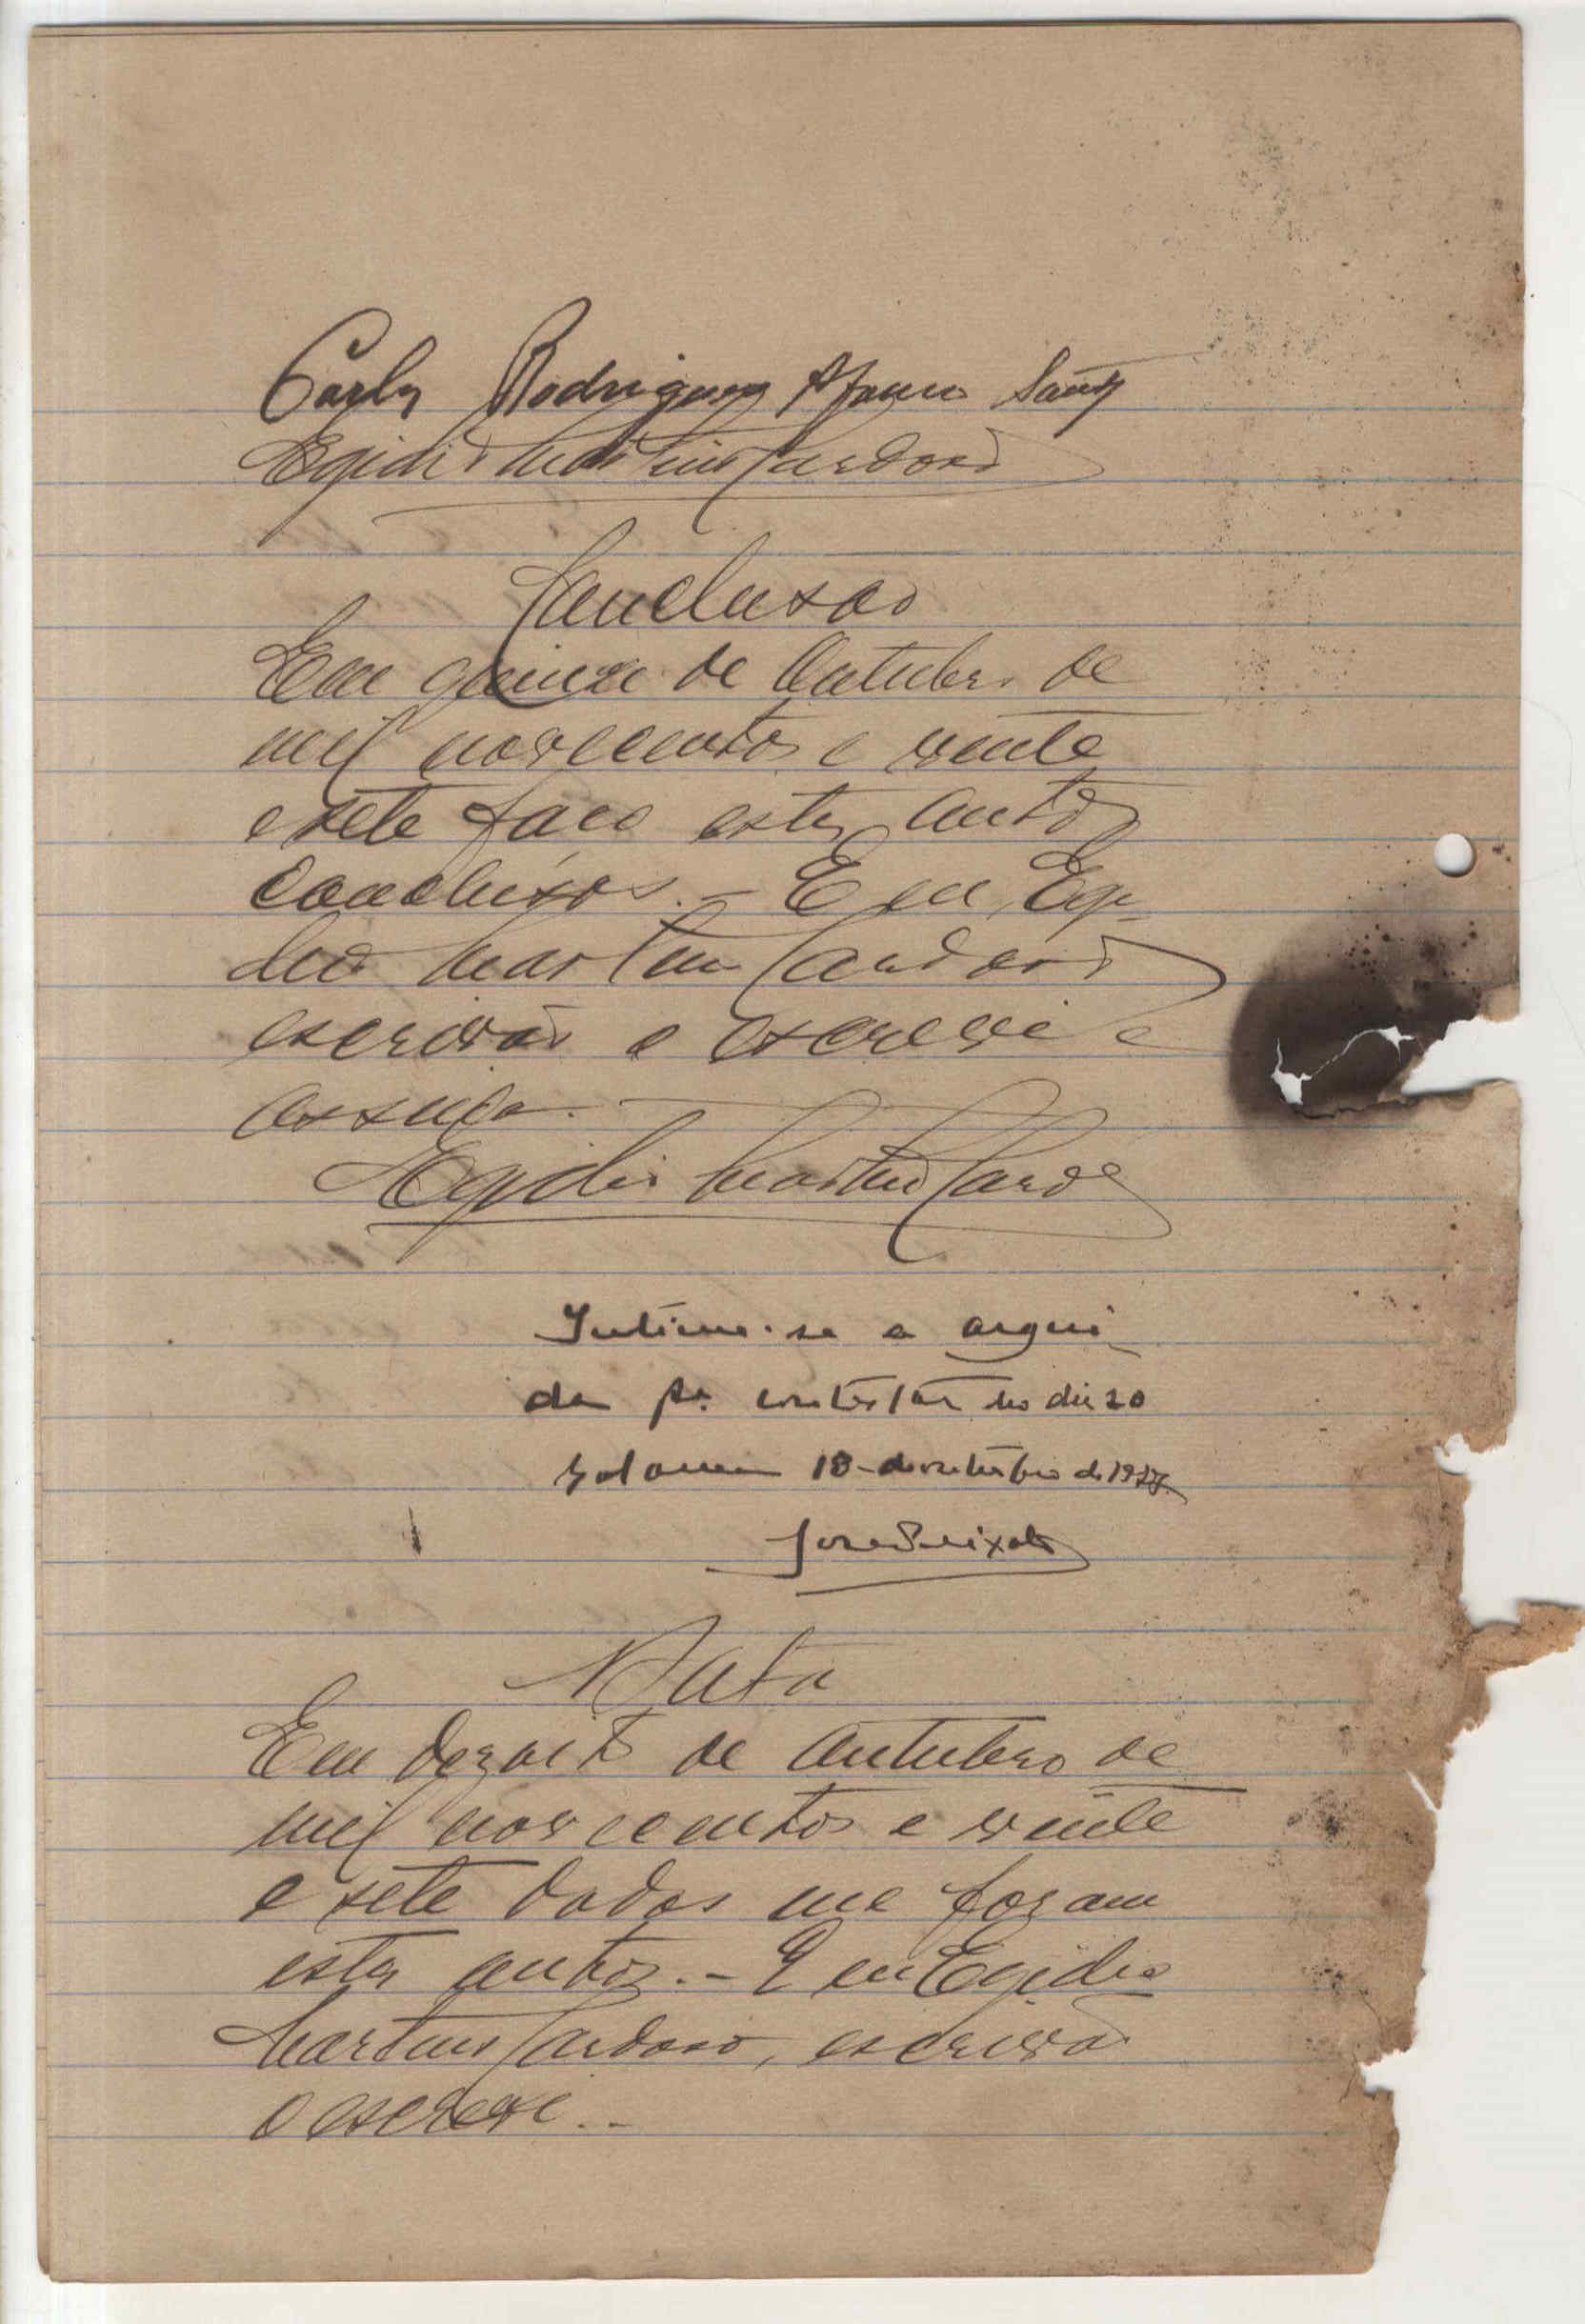 Carlos Rodrigues Afonso Santos
Egidio Martins Cardoso
Conclusão
Em quinze de Outubro de
mil novecentos e vinte
e sete faço estes autos
conclusos. - E eu, Egi-
dio Martins Cardoso
escrivão o escrevi e
assino.
Egidio Martins Cardoso
Intime-se a argui
da pa. contestar no dia 20
18 de outubro de 1927
José Peixoto
Data
Em dezoito de Outubro de
mil novecentos e vinte
e sete dados me foram
estes autos. - E eu Egidio
Martins Cardoso, escrivão
o escrevi. -